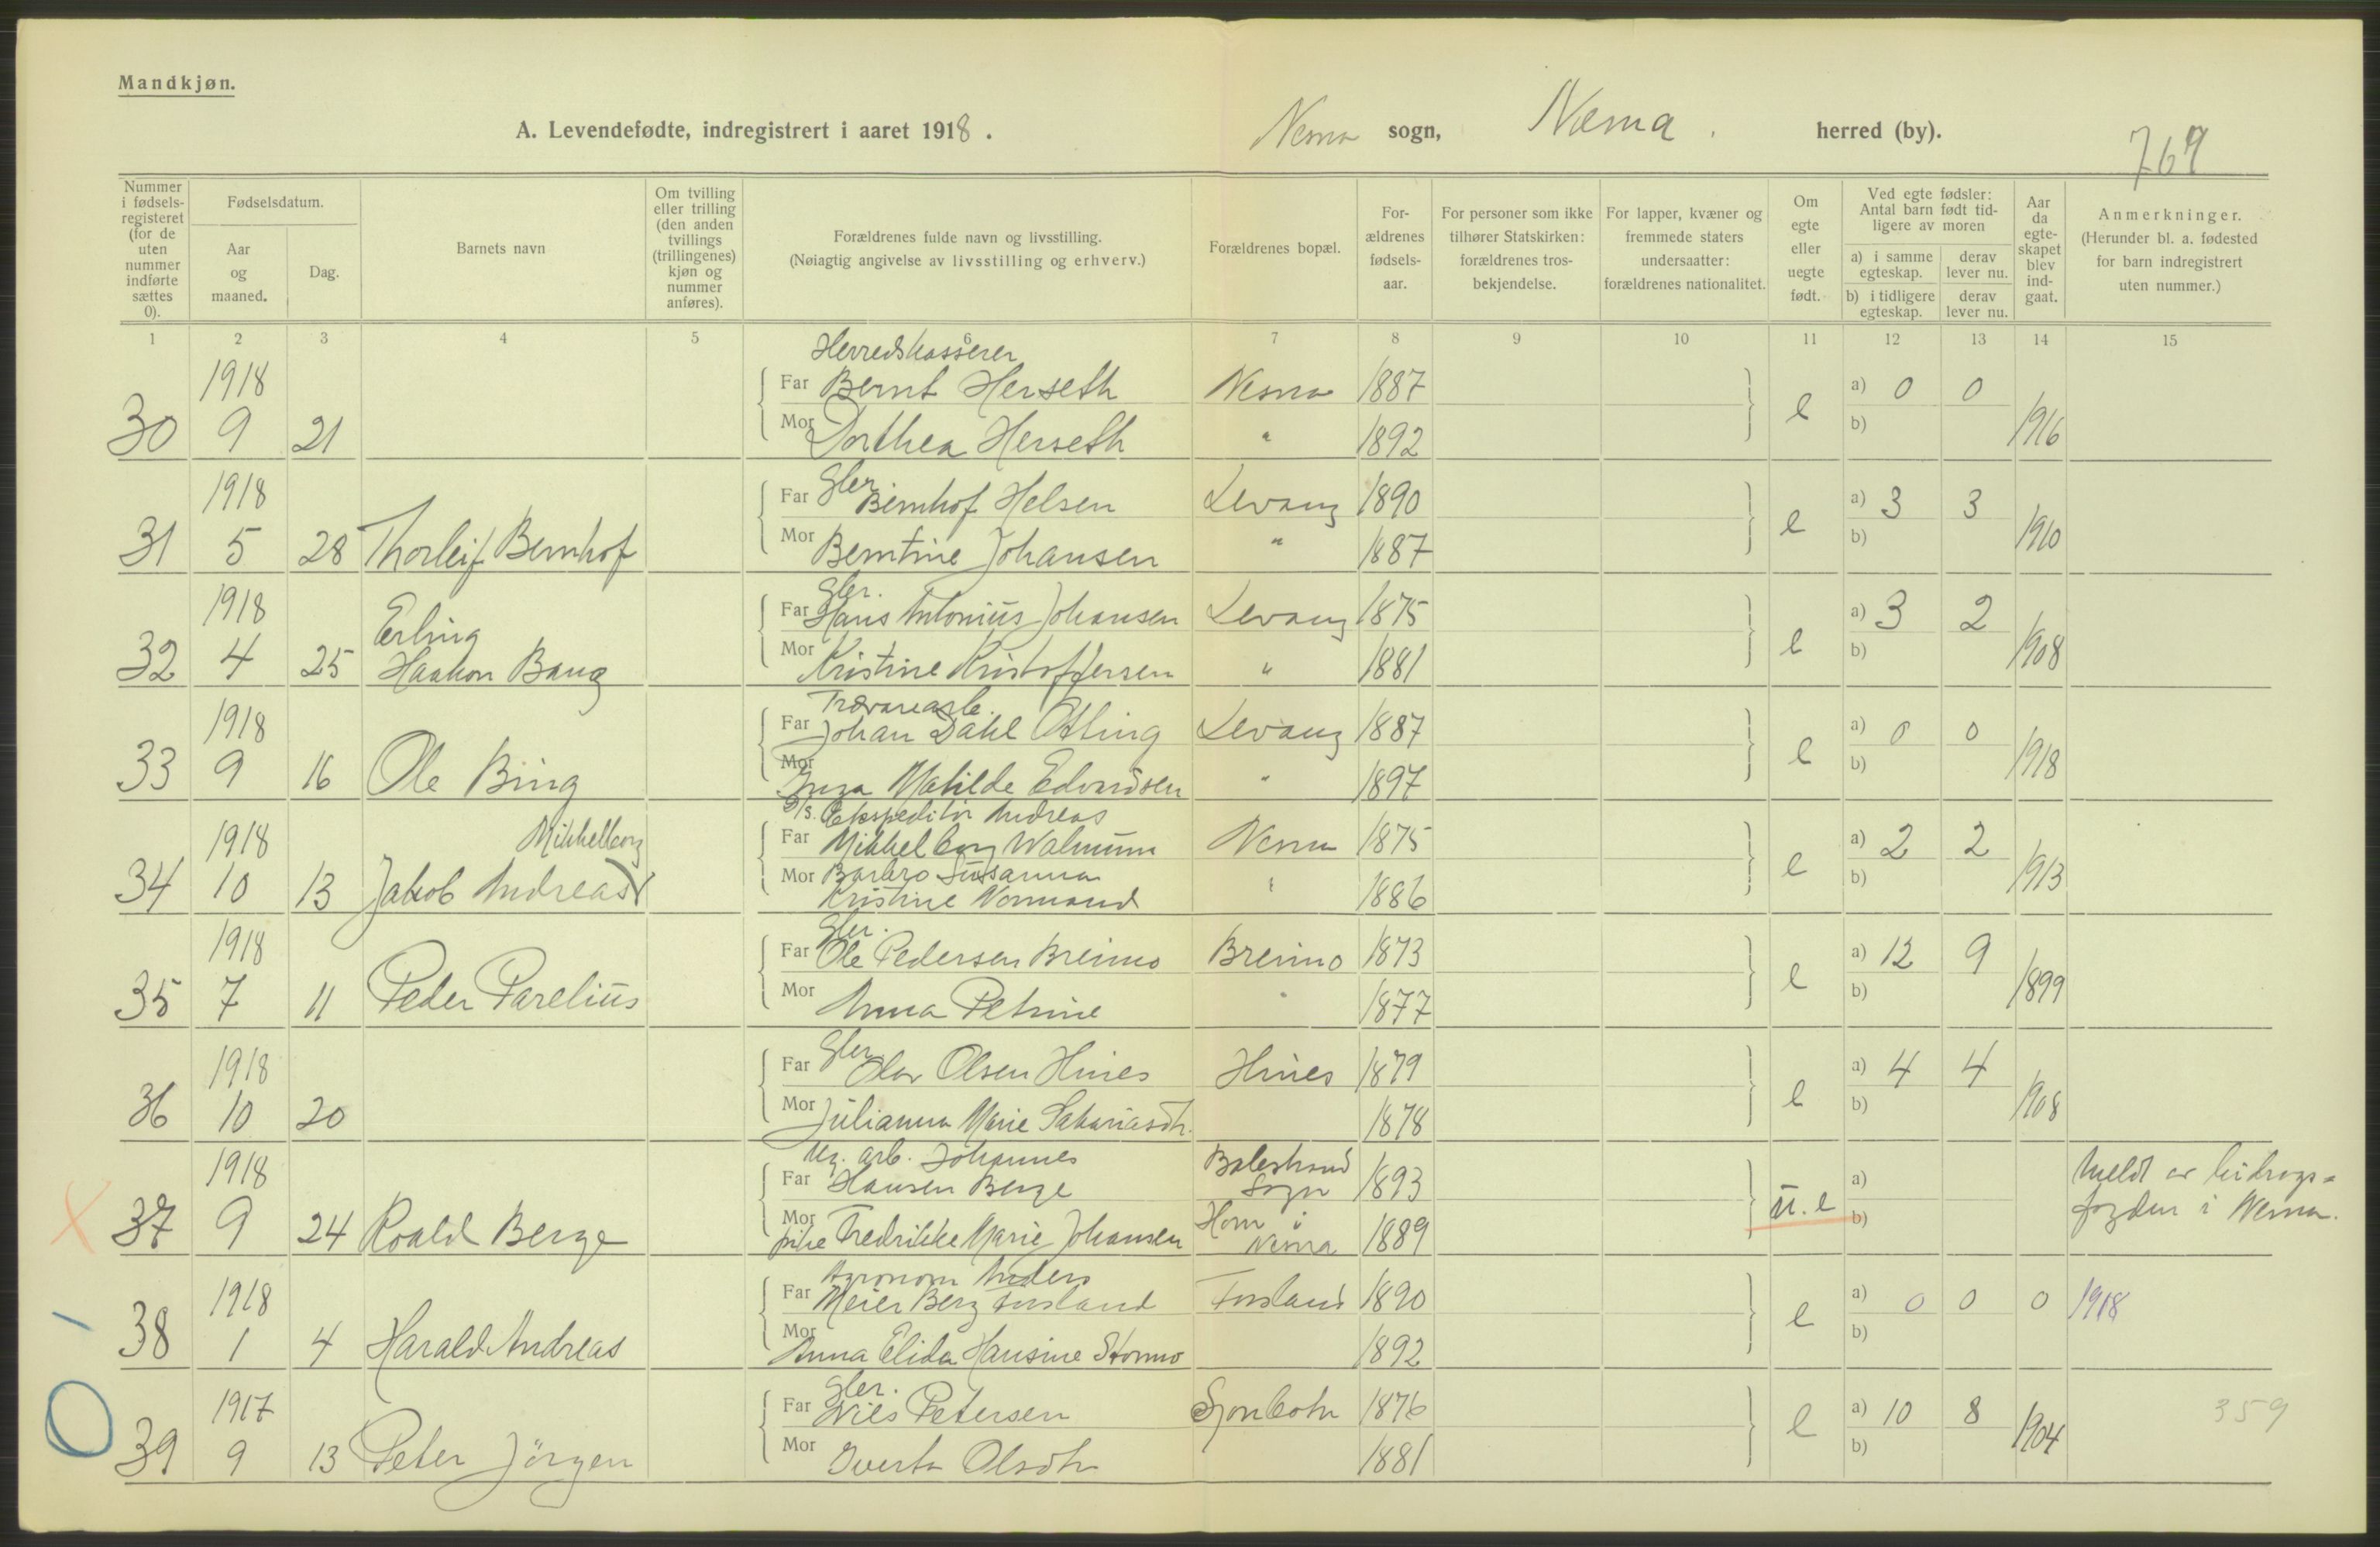 Mandkjøn.
A. Levendefødte, indregistrert i aaret 1918. Nesna sogn, Nesna. herred (by).
769
Nummer i fødsels-registeret (for de uten nummer indførte sættes 0).
Fødselsdatum.
Aar og maaned.
Dag.
Barnets navn
Om tvilling eller trilling (den anden tvillings (trillingenes) kjøn og nummer anføres).
Forældrenes fulde navn og livsstilling.
(Nøiagtig angivelse av livsstilling og erhverv.)
Forældrenes bopæl.
For-ældrenes fødsels-aar.
For personer som ikke tilhører Statskirken: forældrenes tros-bekjendelse.
For lapper, kvæner og fremmede staters undersaatter: forældrenes nationalitet.
Om egte eller uegte født.
Ved egte fødsler: Antal barn født tid-ligere av moren
a) i samme egteskap. derav lever nu.
b) i tidligere egteskap. derav lever nu.
Aar da egte-skapet blev ind-gaat.
Anmerkninger.
(Herunder bl. a. fødested for barn indregistrert uten nummer.)
1 2 3 4 5 6 7 8 9 10 11 12 13 14 15
Herredskasserer
1918 Far Bernt Herseth Nesna 1887 a) 0 0
30 9 21 Mor Dorthea Herseth " 1892 e b) 1916
1918 Far Gbr. Bernhof Helsen Levang 1890 a) 3 3
31 5 28 Thorleif Bernhof Mor Berntine Johansen " 1887 e b) 1910
Gbr.
1918 Erling Far Hans Antonius Johansen Levang 1875 a) 3 2
32 4 25 Haakon Baug Mor Kristine Kristoffersen " 1881 e b) 1908
Trævarearb.
1918 Far Johan Dahl Otting Levang 1887 a) 0 0
33 9 16 Ole Bing Mor Inga Mathilde Edvardsen " 1897 e b) 1918
D/s. Ekspeditør Andreas
1918 Mikkelborg Far Mikkelborg Walnum Nesna 1875 a) 2 2
34 10 13 Jakob Andreas Mor Barbro Susanna " 1886 e b) 1913
Kristine Normand
Gbr.
1918 Far Ole Pedersen Breimo Breimo 1873 a) 12 9
35 7 11 Peder Parelius Mor Anna Petrine " 1877 e b) 1899
1918 Far Gbr. Olav Olsen Hines Hines 1879 a) 4 4
36 10 20 Mor Julianna Marie Sakariasdtr. 1878 e b) 1908
Ug. arb. Johannes Balestrand
1918 Far Hansen Berge Sogn 1893 a) Meldt av bidrags-
37 9 24 Roald Berge Mor pike Fredrikke Marie Johansen Horn i Nesna 1889 u.e b) fogden i Nesna.
Agronom Anders
1918 Far Meier Berg Forsland Forsland 1890 a) 0 0 0 1918
38 1 4 Harald Andreas Mor Anna Elida Hansine Stormo 1892 e b)
Gbr.
1917 Far Nils Petersen Sjonbotn 1876 a) 10 8 359
39 9 13 Peter Jörgen Mor Iverta Olsdtr 1881 e b) 1904